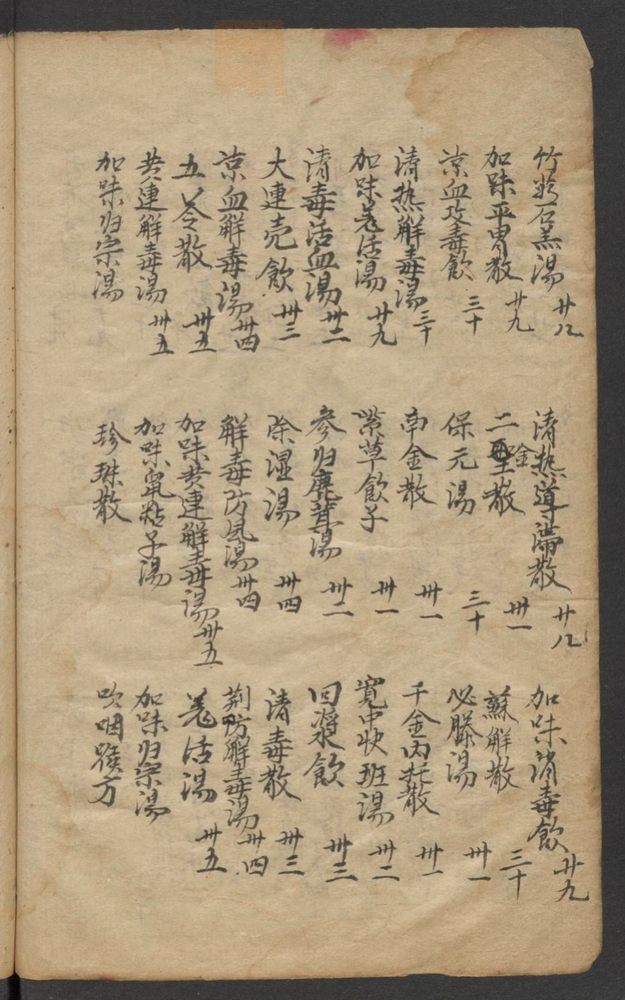 竹葉石羔湯 廿八
清热導滯散 廿八
加味消毒飲 廿九
加味平胃散 廿九
二聖金散 卅一
蘇解散 三十
凉血攻毒飲 三十
保元湯 三十
必勝湯 卅一
清热解毒湯 三十
南金散 卅一
千金内托散 卅一
加味羌活湯 廿九
紫草飲子 卅一
寬中快班湯 卅二
清毒活血湯 卅二
参归鹿茸湯 卅二
回漿飲 卅三
大連壳飲 卅三
除湿湯 卅四
清毒散 卅三
凉血解毒湯 卅四
解毒防風湯 卅四
荆防解毒湯 卅四
五苓散 卅五
加味黄連解毒湯 卅五
羌活湯 卅五
黄連解毒湯 卅五
加味鼠粘子湯
加味归宗湯
加味归宗湯
珍珠散
吹咽喉方